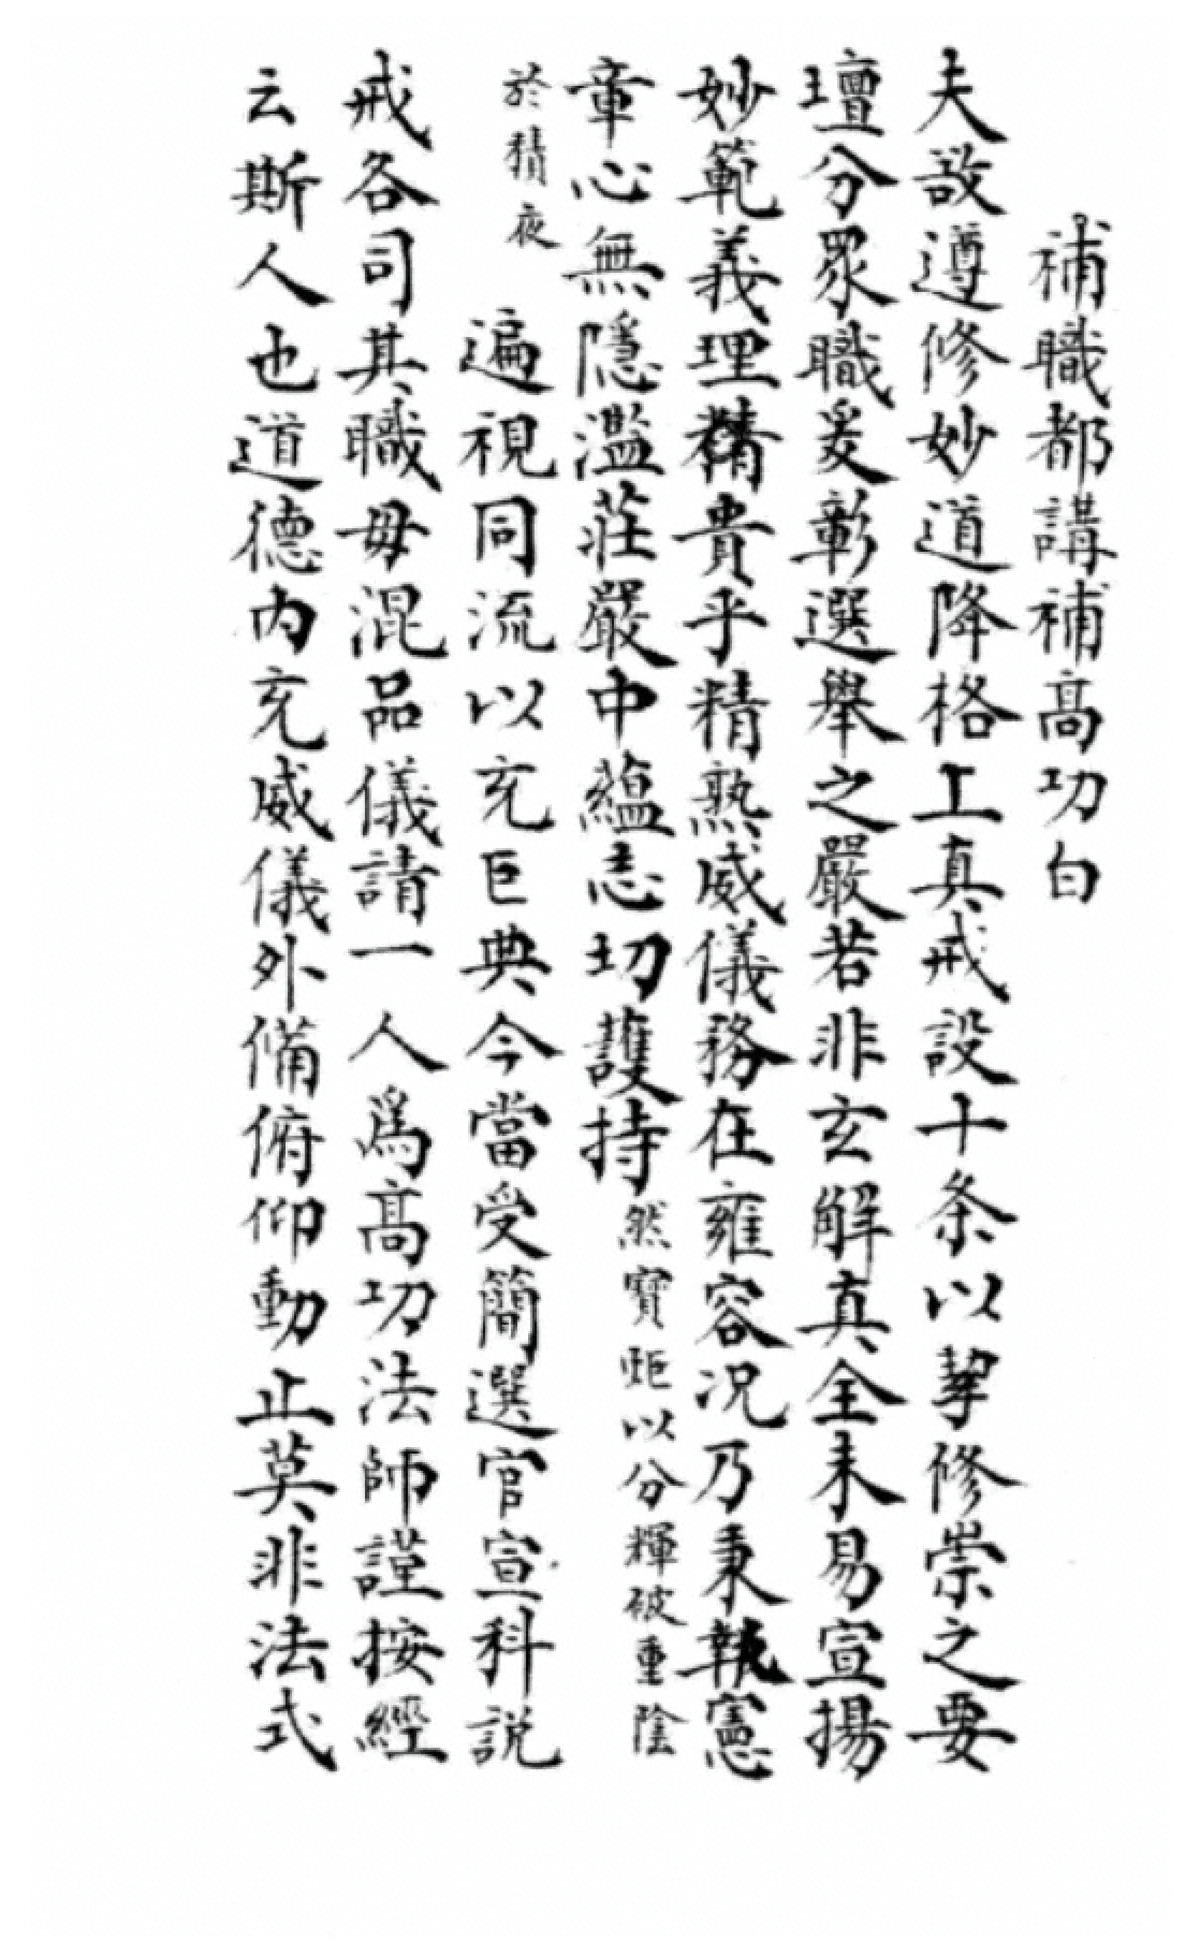 補職都講補高功白
夫啟遵修妙道降格上真戒設十条以挈修崇之要
壇分眾職爰彰選舉之嚴若非玄解真全未易宣揚
妙範義理精貴乎精熟威儀務在雍容况乃秉執憲
章心無隱濫莊嚴中蘊志切護持然寶炬以分輝破重陰
於積夜
遍視同流以充巨典今當受簡選官宣科說
戒各司其職毋混品儀請一人為高功法師謹按經
云斯人也道德內充威儀外備俯仰動止莫非法式